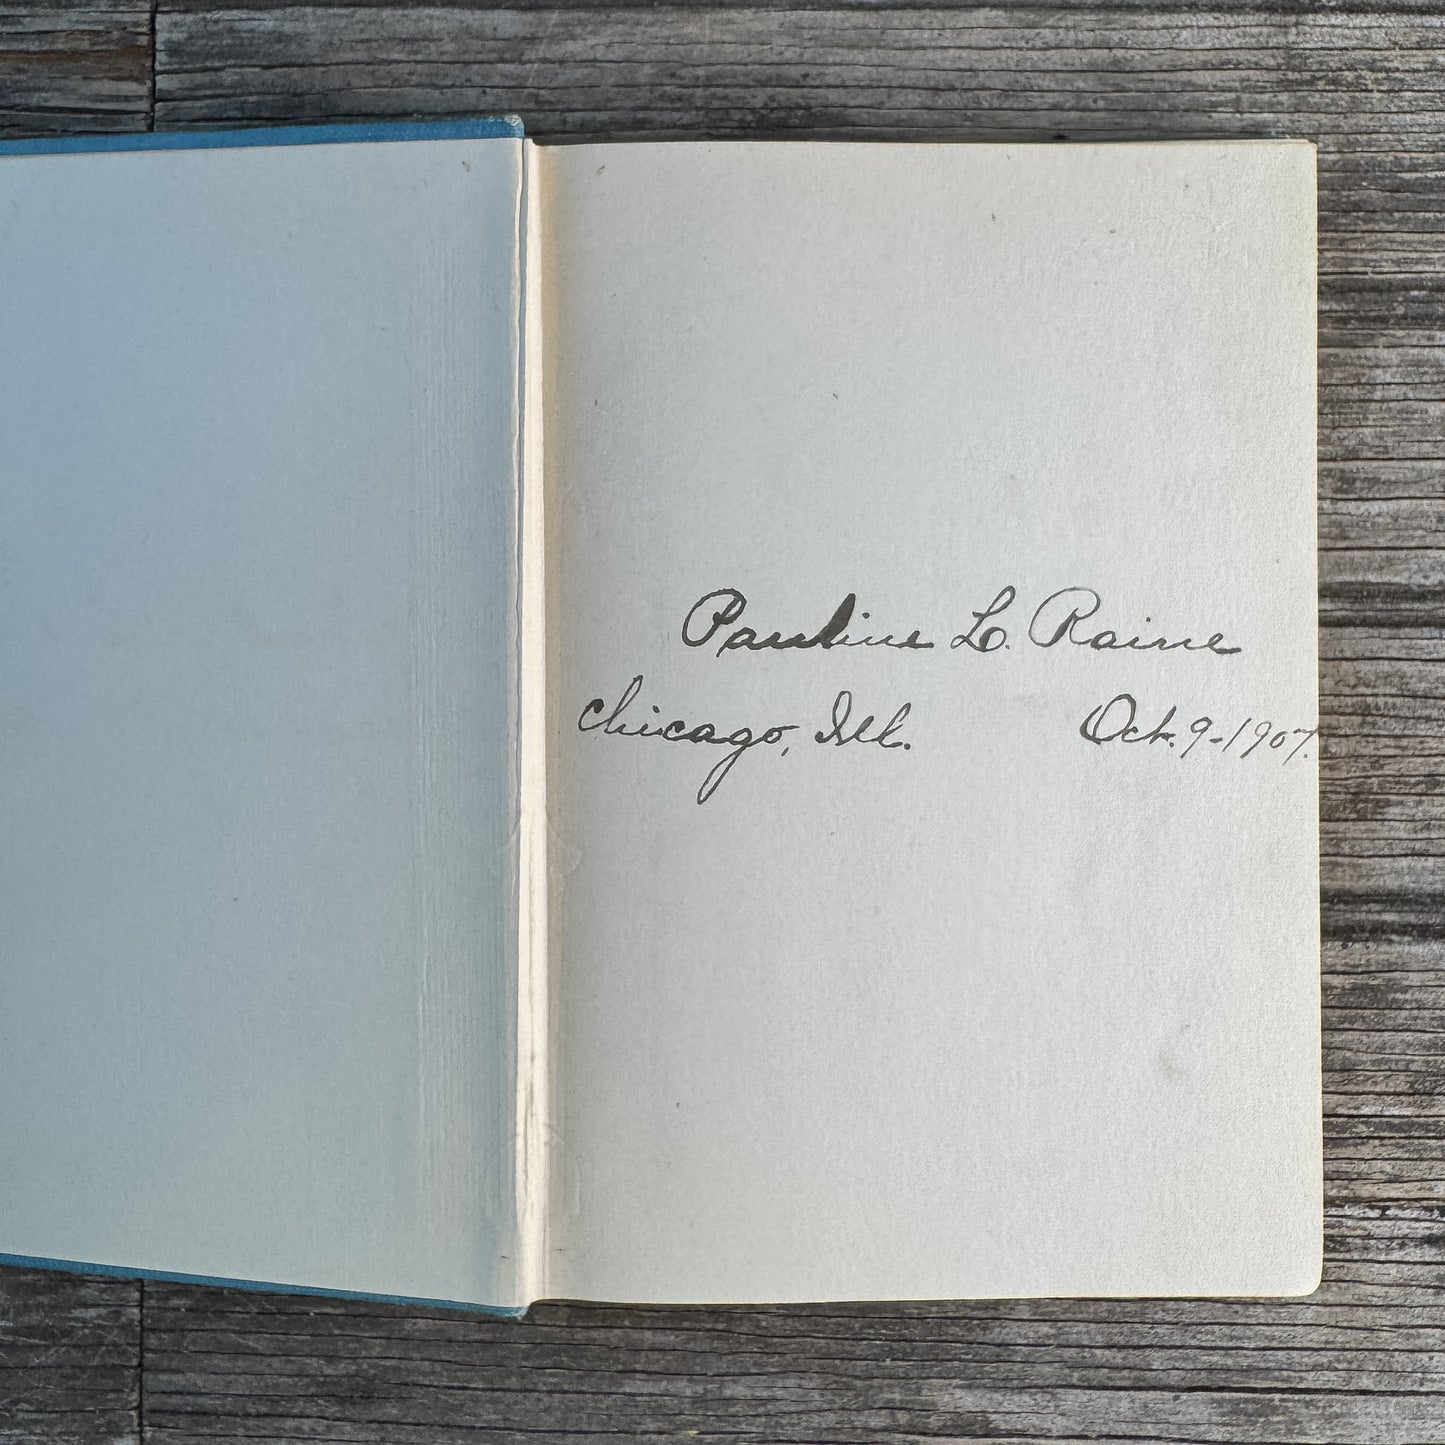 Pauline L. Raine
Chicago, Ill. Oct. 9-1907.